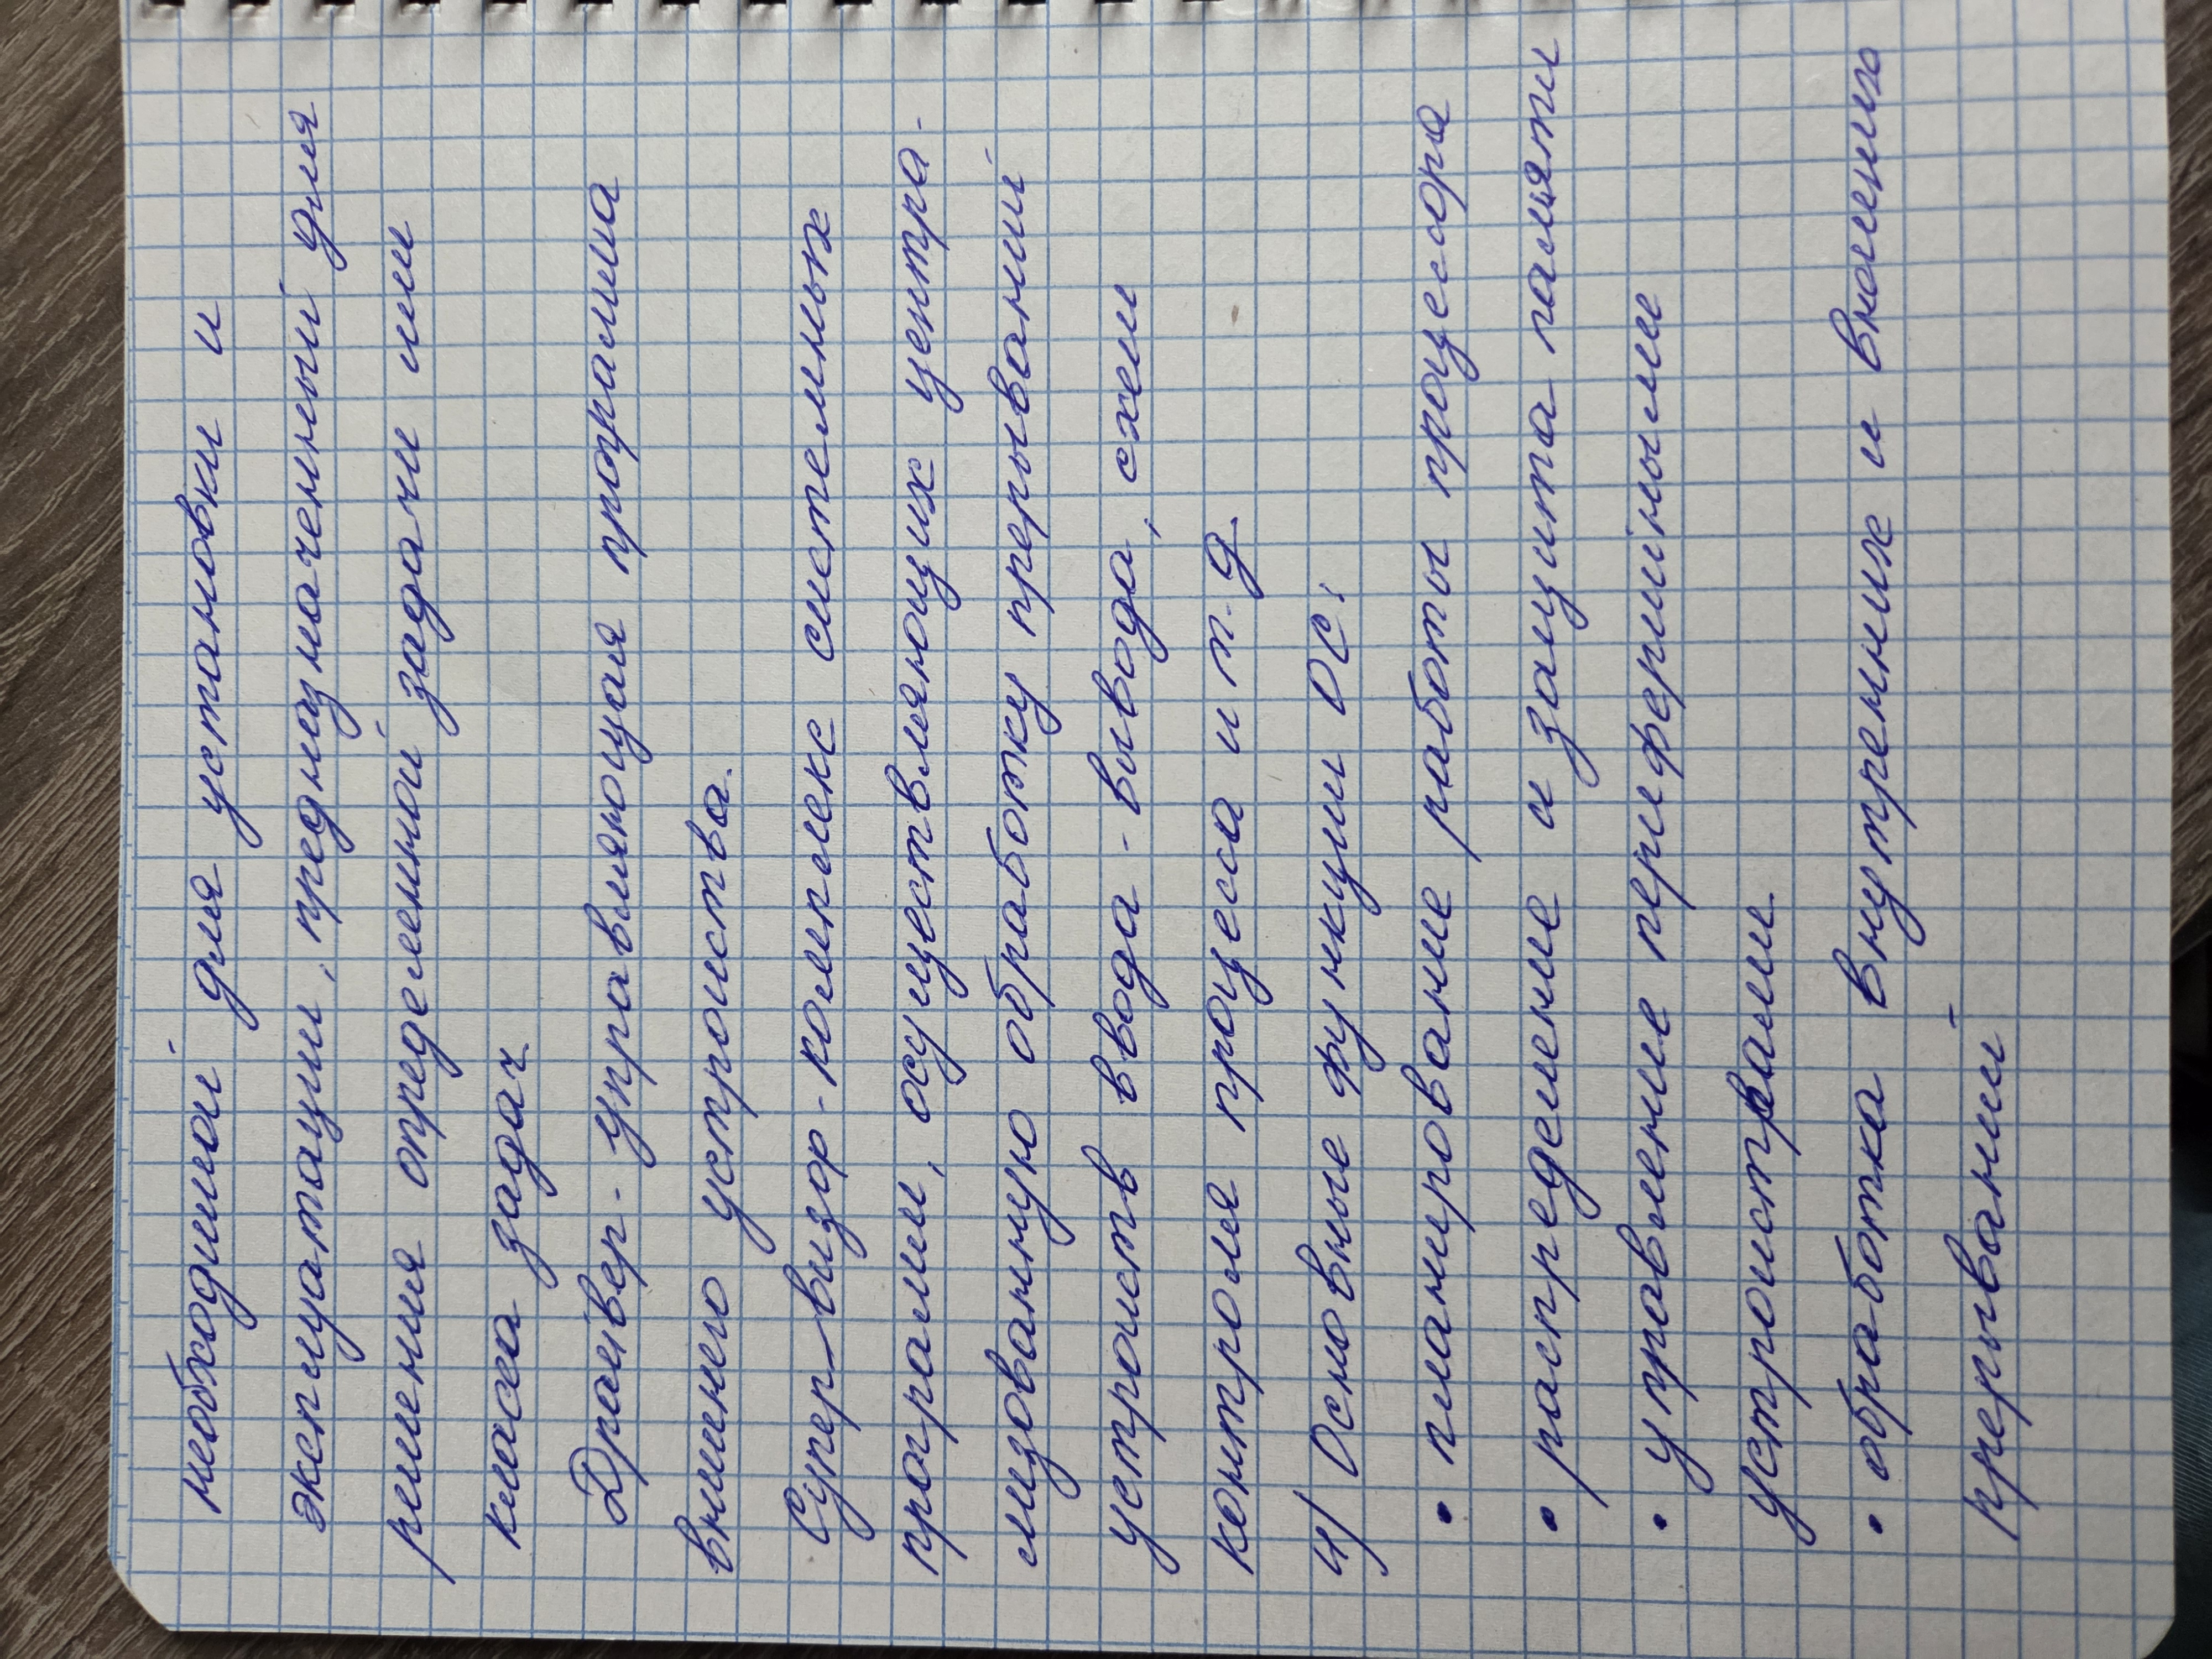 необходимой для установки и
эксплуатации, предназначенный для
решения определенной задачи или
класса задач.
Драйвер - управляющая программа
внешнего устроиства.
Супер-визор - комплекс системных
программ, осуществляющих центра-
лизованную обработку прерываний
устроиств ввода - вывода, схем
контроля процесса и т.д.
4) Основные функции ОС:
• планирование работы процессора
• распределение и защита памяти
• управление периферийными
устроиствами.
• обработка внутренних и внешних
прерываний